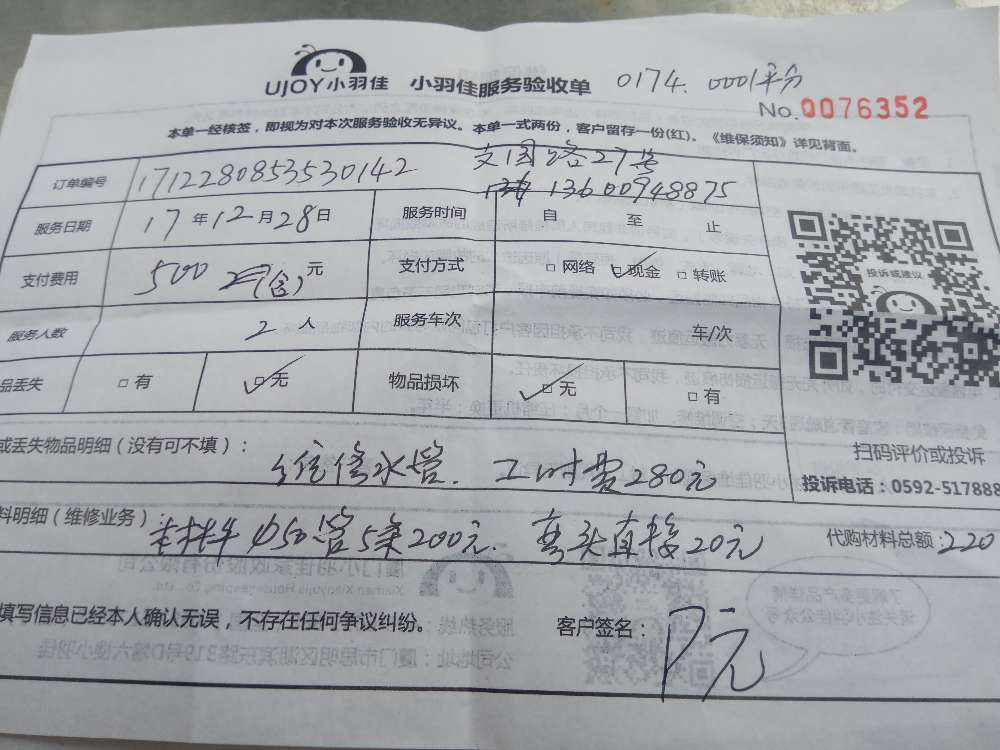 UJOY小羽佳 小羽佳服务验收单 0174.0001
No.0076352
本单一经核签，即视为对本次服务验收无异议。本单一式两份，客户留存一份(红)。《维保须知》详见背面。
订单编号 171228085353０142 27号
13600948875
服务日期 17年12月28日 服务时间 自 至 止
支付费用 500元(含)元 支付方式 □网络 ☑现金 □转账
投诉或建议
服务人数 2人 服务车次 车/次
品丢失 □有 ☑无 物品损坏 ☑无 □有
扫码评价或投诉
或丢失物品明细（没有可不填）：
维修水管. 工时费280元
投诉电话：0592-517888
料明细（维修业务）：
材料 φ50管5条200元. 弯头直接20元 代购材料总额：220
填写信息已经本人确认无误，不存在任何争议纠纷。 客户签名：